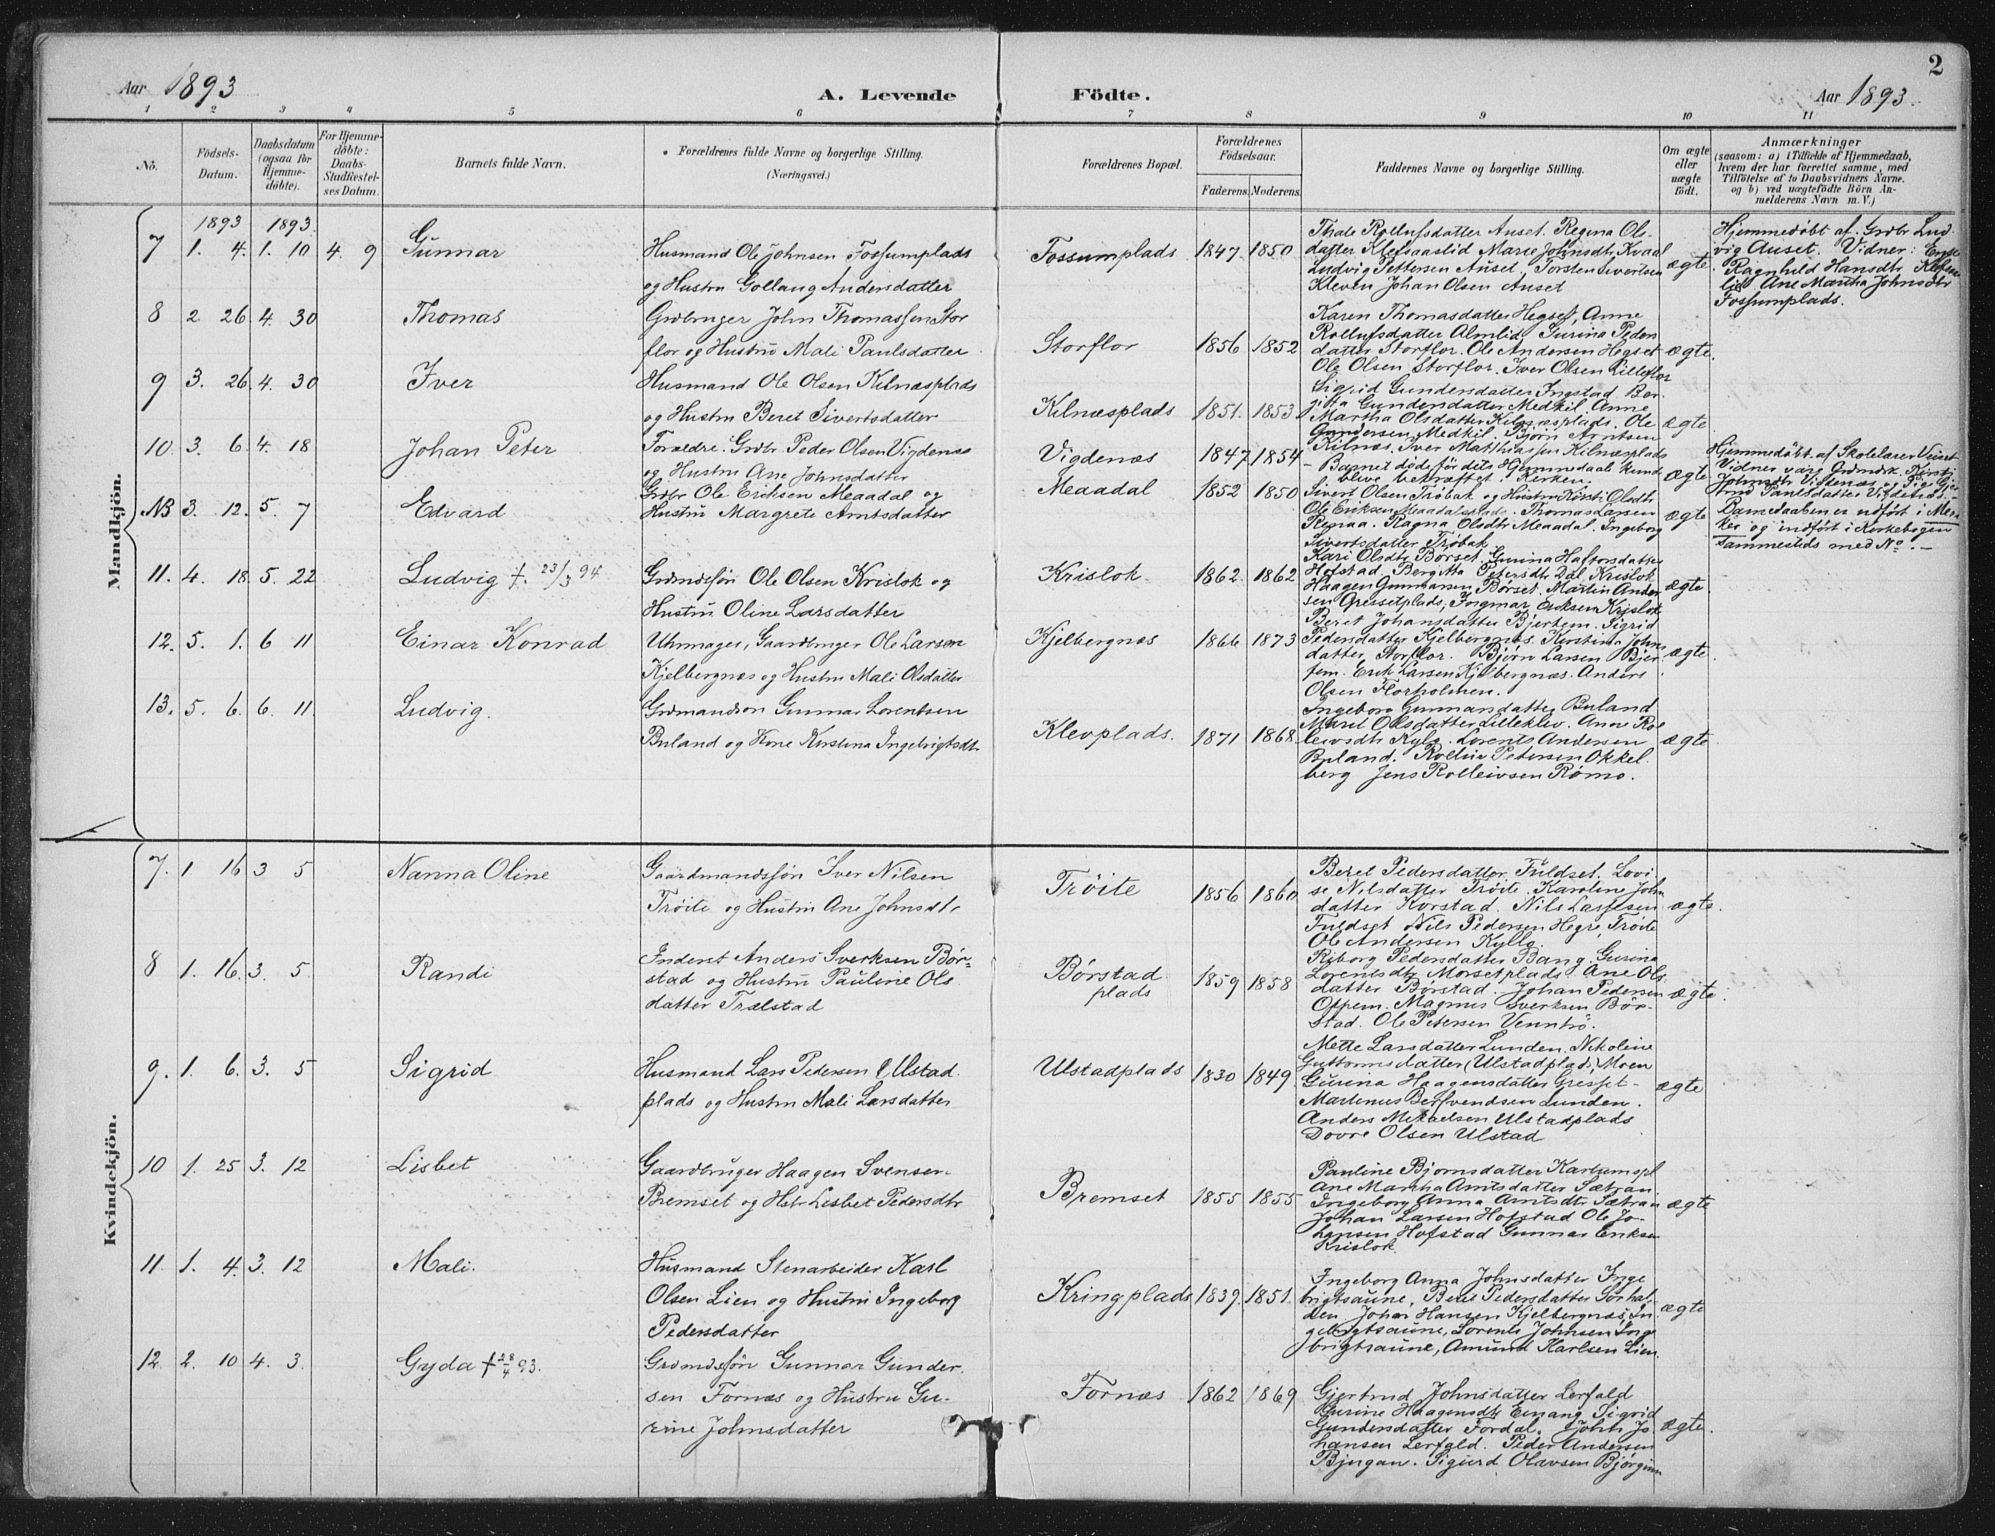 2
Aar 1893
A. Levende
Födte.
Aar 1893.
1 2 3 4 5 6 7 8 9 10 11
No.
Födsels-
Datum.
Daabsdatum
(ogsaa for
Hjemme-
döbte).
For Hjemme-
döbte:
Daabs-
Stadfæstel-
ses Datum.
Barnets fulde Navn.
Forældrenes fulde Navne og borgerlige Stilling.
(Næringsvei.)
Forældrenes Bopæl.
Forældrenes
Födselsaar.
Faderens. Moderens.
Faddernes Navne og borgerlige Stilling.
Om ægte
eller
uægte
födt.
Anmærkninger
(saasom: a) i Tilfælde af Hjemmedaab,
hvem der har forrettet samme, med
Tilföielse af to Daabsvidners Navne,
og b) ved uægtefödte Börn An-
melderens Navn m. V.)
Mandkjön.
1893 1893.
7 1. 4. 1. 10 4. 9 Gunnar
Husmand Ole Johnsen Fossumplads
og Hustru Gollaug Andersdatter
Fossumplads 1847. 1850
Thale Rollufsdatter Auset. Regina Ol-
datter Klefsaaslid Marie Johnsdt. Kvaal
Ludvig Pettersen Auset, Torsten Sivertsen
Kleven Johan Olsen Auset
ægte.
Hjemmedöbt af Grdbr Lud-
vig Auset. Vidner:
Ragnhild Hansdtr
Ane Martha Johnsdtr
Fossumplads.
8 2 26. 4. 30 Thomas
Grdbruger John Thomassen Stor
flor og Hustru Mali Paulsdatter.
Storflor 1856 1852
Karen Thomasdatter Hegset, Anne
Rollufsdatter Almlid Gurina Peders
datter Storflor. Ole Andersen Hegset
Ole Olsen Storflor. Iver Olsen Lilleflor
ægte.
9 3. 26. 4. 30 Iver
Husmand Ole Olsen Kilnæsplads
og Hustru Beret Sivertsdatter
Kilnæsplads 1851. 1853
Sigrid Gundersdatter Ingstad Ber-
jitta Gundersdatter Medkil. Anne
Martha Olsdatter Kilnæsplads. Ole
Gundersen Medkil. Bjørn Arntsen
Kilnæs, Iver Mathiassen Kilnæsplads
ægte
10 3. 6. 4. 18 Johan Peter
Forældre: Grdbr Peder Olsen Vigdenæs
og Hustru Ane Johnsdatter
Vigdenæs 1847 1854
- Barnet døde før dets Hjemmedaab kunde
blive bekræftet i Kirken.
ægte
Hjemmedöbt af Skolelærer
Vidner vare Grdmdsk. Kirsti
Johnsdtr Vigdenæs og
Paulsdatter Vigdenæs. -
NB 3. 12. 5. 7 Edvard
Grdbr Ole Eriksen Meaadal og
Hustru Margrete Arntsdatter
Meaadal 1852 1850
Sivert Olsen Trøbak og Hustru Kirsti Olsdtr
Ole Eriksen Meaadalsplads. Thomas Larsen
Renaa. Ragna Olsdtr Meaadal, Ingeborg
Sivertsdatter Trøbak
ægte
Barnedaaben er udført i Mera-
ker og indført i Kirkebogen
sammesteds med No. -
11. 4. 18. 5. 22 Ludvig †. 23/3 94
Grdmdssøn Ole Olsen Krislok og
Hustru Oline Larsdatter
Krislok. 1862. 1862
Kari Olsdtr Børset. Gurina Haftorsdatter
Hofstad, Bergitta Petersdtr Dal, Krislok
Haagen Gunnarsen Børset, Martin Ander
sen Gressetplads, Ingmar Eriksen Krislok
ægte.
12. 5. 1. 6 11 Einar Konrad
Uhrmager, Gaardbruger Ole Larsen
Kjelbergnæs og Hustru Mali Olsdatter
Kjelbergnæs 1866 1873
Beret Johansdatter Bjertem. Sigrid
Pedersdatter Kjelbergnæs. Kirstina Johns
datter Storflor. Bjørn Larsen Bjer-
tem. Erik Larsen Kjelbergnæs. Anders
Olsen Florholmen.
ægte.
13. 5. 6. 6. 11. Ludvig.
Grdmandssøn Gunnar Lorentsen
Buland og Kone Kirstina Ingebrigtsdt.
Klevplads. 1871 1868.
Ingeborg Gunnarsdatter Buland
Marit Olsdatter Lilleklev. Ane Ro-
leivsdtr Kylg. Lorents Andersen
Buland. Rolluf Petersen Okkel
berg Jens Rolleivsen Rømo.
ægte
Kvindekjön.
7. 1 16 3 5 Nanna Oline
Gaardmandssøn Iver Nilsen
Trøite og Hustru Ane Johnsdt.
Trøite 1856 1860
Beret Pedersdatter Fuldset. Lovi-
se Nilsdatter Trøite. Karoline John
datter Korstad. Nils Larssen
Fuldset Nils Pedersen Hegre, Trøite
Ole Andersen Kyllo.
ægte.
8 1. 16. 3. 5. Randi
Inderst Anders Sverksen Bør-
stad og Hustru Pauline Ols
datter Trælstad
Børstad
plads 1859 1858
Riborg Pedersdatter Bang. Gurina
Lorentsdtr Morsetplads Ane Ols
datter Børstad. Johan Pedersen
Oppem. Magnus Sverksen Bør-
stad. Ole Petersen Venntrø.
ægte.
9. 1. 6. 3. 5 Sigrid
Husmand Lars Pedersen Ulstad
plads og Hustru Mali Larsdatter
Ulstadplads 1830 1849
Mette Larsdatter Lunden. Nikoline
Guttormsdatter (Ulstadplads) Moen
Gurina Haagensdatter Gresset-
Martinus Berfvendsen Lunden.
Anders Mikaelsen Ulstadplads
Dovre Olsen Ulstad
ægte
10 1. 25 3. 12 Lisbet
Gaardbruger Haagen Svensen
Bremset og Hstr Lisbet Pedersdtr
Bremset 1855 1855
Pauline Bjørnsdatter Karlsamspl
Ane Martha Arntsdatter Sætran
Ingeborg Anna Arntsdtr Sætran
Johan Larsen Hofstad Ole Jo-
hansen Hofstad Gunnar Eriksen
Krislok.
ægte
11. 1. 4. 3. 12 Mali.
Husmand Stenarbeider Karl
Olsen Lien og Hustru Ingeborg
Pedersdatter
Kringplads 1839. 1851.
Ingeborg Anna Johnsdatter Inge
brigtsaune, Beret Pedersdatter Sørhal-
den Johan Hansen Kjelbergnæs, In-
gebrigtsaune, Lorents Johnsen Inge
brigtsaune, Amund Karlsen Lien.
ægte
12. 2. 10 4. 3. Gyda † 28/4 93.
Grdmdssøn Gunnar Gunder
sen Fornæs og Hustru Gu-
rine Johnsdatter
Fornæs 1862 1869
Gjertrud Johnsdatter Lerfald
Gurine Haagensdtr Einang Sigrid
Gundersdatter Fordal. John Jo
hansen Lerfald. Peder Andersen
Bjugan. Sigurd Olavsen Bjørgum
ægte.